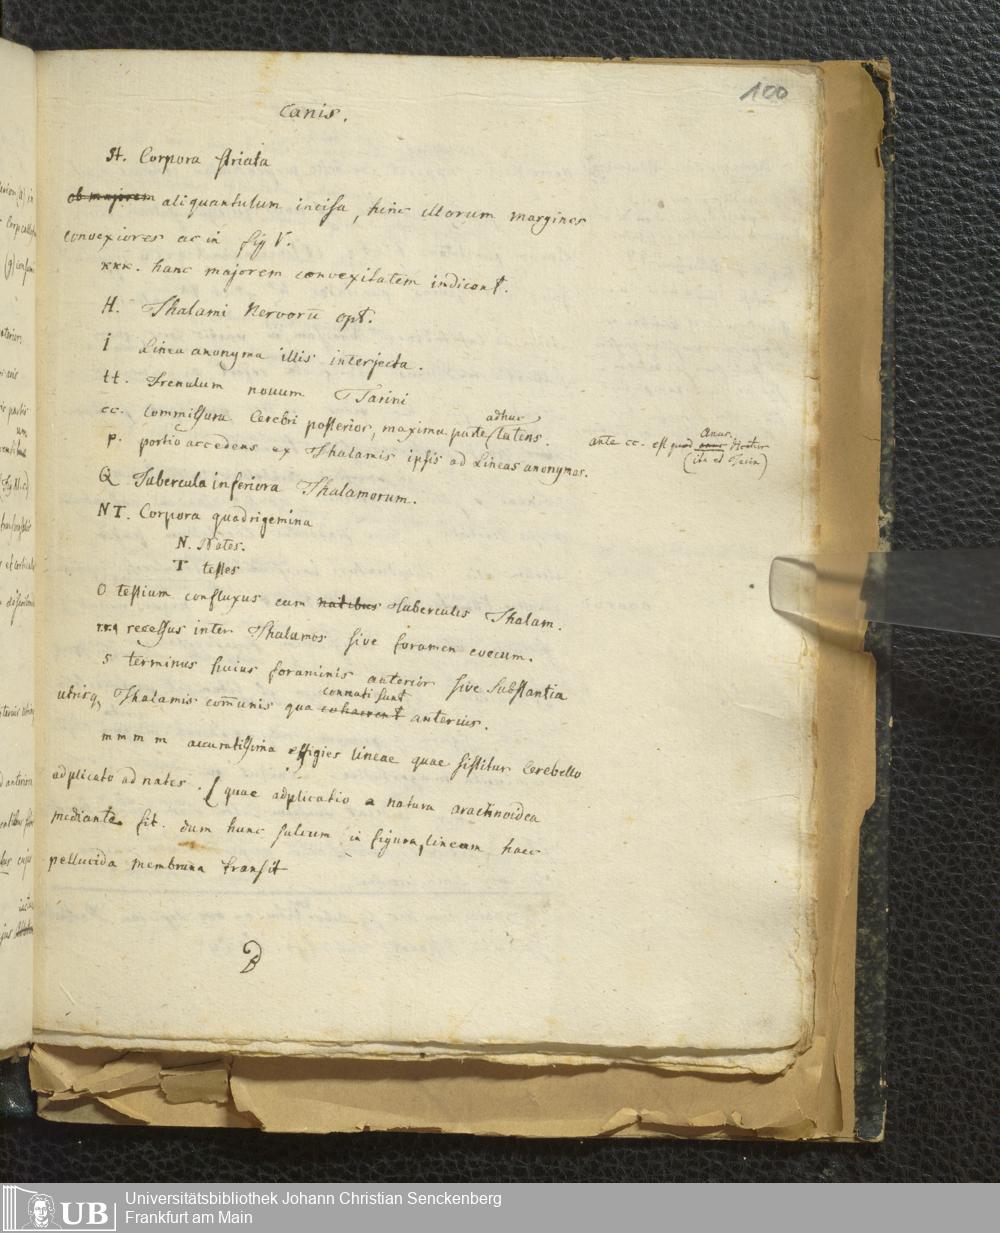 100
Canis.
St. Corpora striata
ob majorem aliquantulum incisa, hinc illorum margines
convexiores ac in fig V.
xxx. hanc majorem convexitatem indicant.
H. Thalami Nervorū opt.
I Linea anonyma illis interjecta.
tt. Frenulum novum Tarini
cc. Commissura Cerebri posterior, maxima parte adhuc latens.
ante cc. est quod anus Anus. dicitur
(ita et Tarin)
p. portio accedens ex Thalamis ipsis ad Lineas anonymas.
Q Tubercula inferiora Thalamorum.
NT. Corpora quadrigemina
N. Nates.
T testes
O testium confluxus cum natibus Tuberculis Thalam.
r.r.q recessus inter Thalamos sive foramen coecum.
s terminus huius foraminis anterior sive Substantia
utrisq Thalamis com̄unis qua cohaerent connati sunt anterius.
m m m m accuratissima effigies lineae quae sistitur Cerebello
adplicato ad nates. quae adplicatio a natura arachnoidea
mediante fit. dum hunc sulcum in figura, lineam haec
pellucida membrana transit
Universitätsbibliothek Johann Christian Senckenberg
Frankfurt am Main
UB